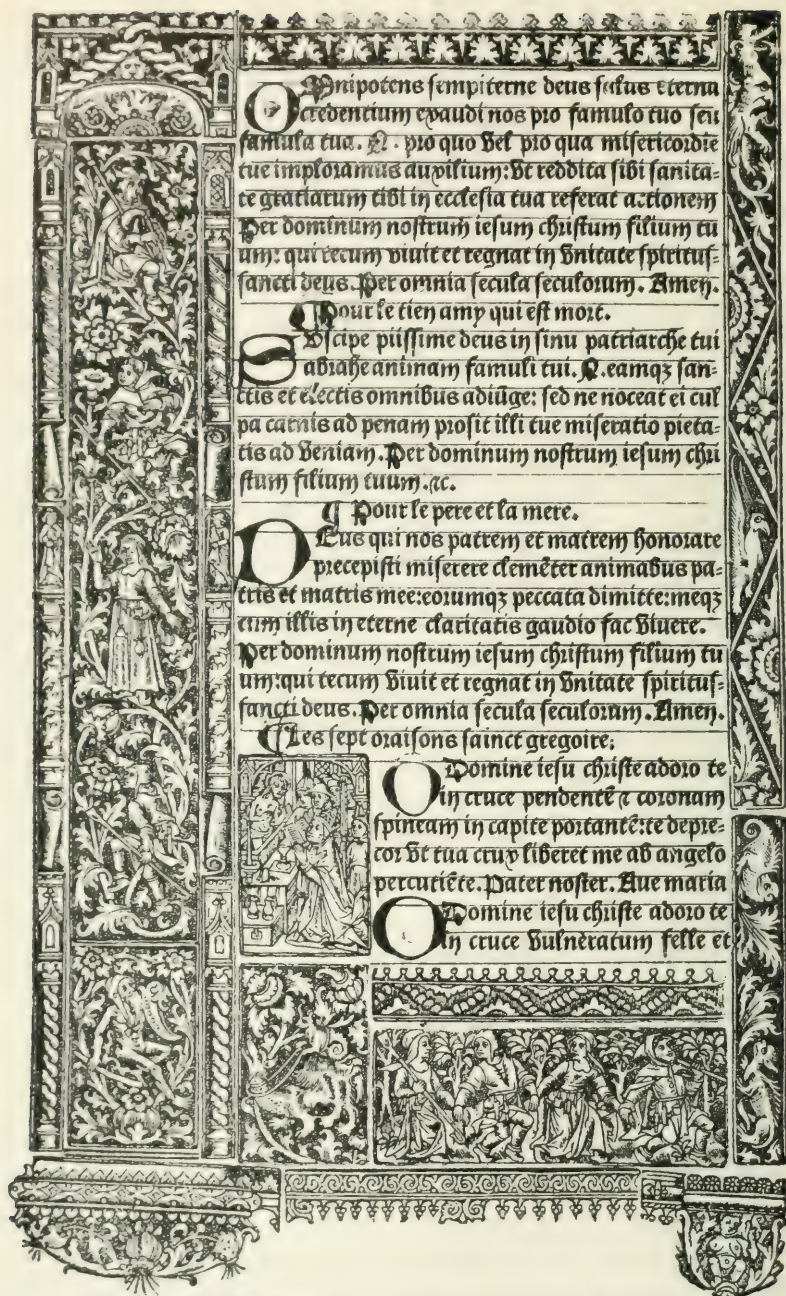 OMnipotens sempiterne deus salus eterna
credentium exaudi nos pro famulo tuo seu
famula tua. N. pro quo vel pro qua misericordie
tue imploramus auxilium: vt reddita sibi sanita=
te gratiarum tibi in ecclesia tua referat actionem
Per dominum nostrum iesum christum filium tu
um: qui tecum viuit et regnat in vnitate spiritus=
sancti deus. Per omnia secula seculorum. Amen.
¶ Pour le tien amy qui est mort.
SVscipe piissime deus in sinu patriarche tui
abrahe animam famuli tui. N. eamqꝫ san=
ctis et electis omnibus adiūge: sed ne noceat ei cul
pa carnis ad penam prosit illi tue miseratio pieta=
tis ad veniam. Per dominum nostrum iesum chri
stum filium tuum. ⁊c.
¶ Pour le pere et la mere.
DEus qui nos patrem et matrem honorare
precepisti miserere clemēter animabus pa=
tris et matris mee: eorumqꝫ peccata dimitte: meqꝫ
cum illis in eterne claritatis gaudio fac viuere.
Per dominum nostrum iesum christum filium tu
um: qui tecum viuit et regnat in vnitate spiritus=
sancti deus. Per omnia secula seculorum. Amen.
¶ Les sept oraisons sainct gregoire.
O Domine iesu christe adoro te
in cruce pendentē ⁊ coronam
spineam in capite portantē: te depre=
cor vt tua crux liberet me ab angelo
percutiēte. Pater noster. Aue maria
O Domine iesu christe adoro te
in cruce vulneratum felle et